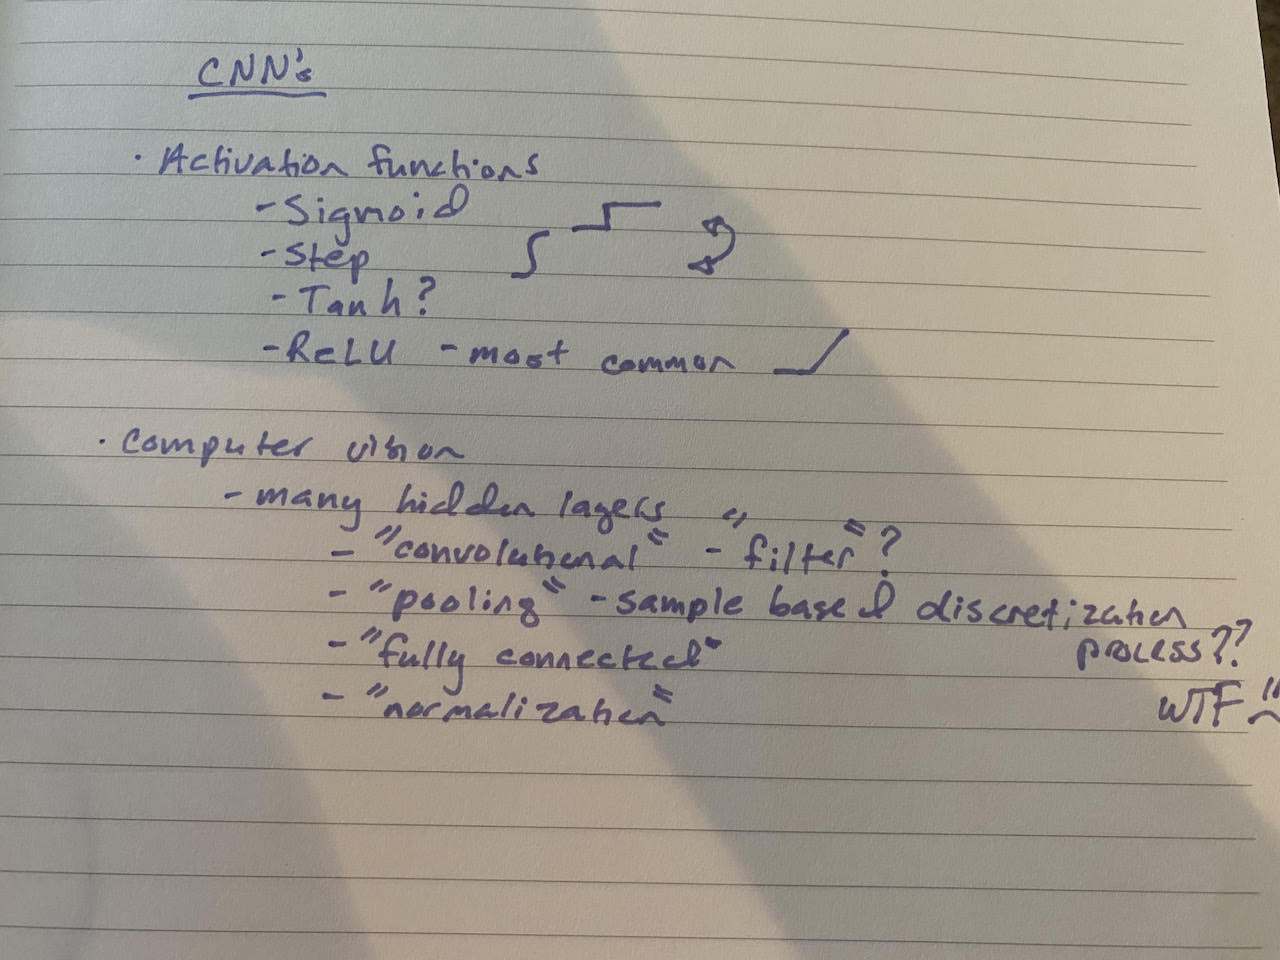 CNN's
· Activation functions
- Sigmoid
- Step
- Tanh?
- ReLU - most common
· Computer vision
- many hidden layers
- "convolutional" - "filter"?
- "pooling" - sample based discretization
process??
- "fully connected"
- "normalization"
WTF